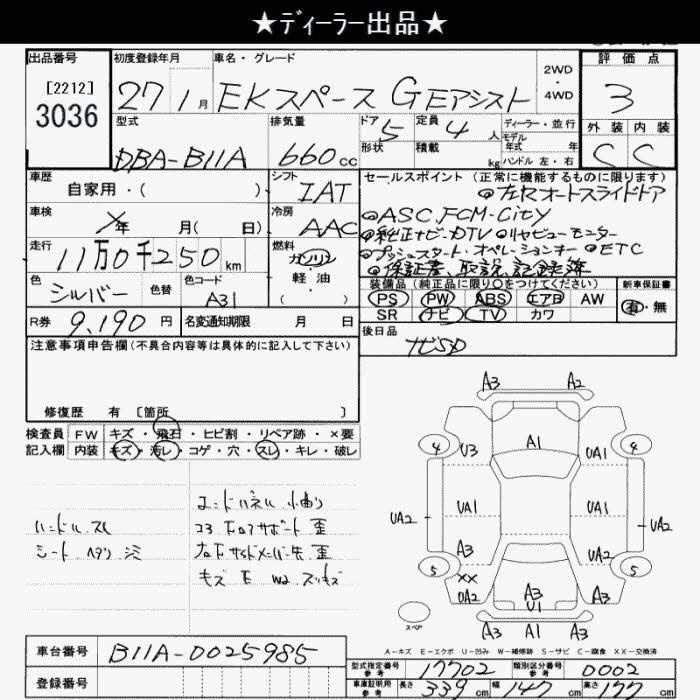 ★ディーラー出品★
出品番号
[2212]
3036
初度登録年月
27 1月
車名・グレード
EKスペース G Eアシスト
2WD
・
4WD
評価点
3
外装 内装
C C
型式
DBA-B11A
排気量
660cc
ドア 5
形状
定員 4人
積載 kg
ディーラー・並行
モデル年式 年
ハンドル 左・右
車歴
自家用・( )
シフト
IAT
車検
年 月( 日)
冷房
AAC
走行
11万0千250km
燃料
ガソリン
軽油
( )
色
シルバー
色替
色コード
A31
R券 9,190円
名変通知期限 月 日
セールスポイント(正常に機能するものに限ります)
◎左Rオートスライドドア
◎ASC,FCM-City
◎純正ナビ.DTV ◎リヤビューモニター
◎プッシュスタート・オペレーションキー ◎ETC
◎保証書、取説、記録簿
装備品(純正品に限り○をつけてください) 新車保証書
PS PW ABS エアB AW
SR ナビ TV カワ
有・無
後日品
ナビSD
注意事項申告欄(不具合内容等は具体的に記入して下さい)
修復歴 有 [箇所 ]
検査員 FW キズ・飛石・ヒビ割・リペア跡・×要
記入欄 内装 キズ・汚レ・コゲ・穴・スレ・キレ・破レ
ハンドル スレ
シート ヘタリ シミ
エンドパネル 小曲り
コアロアサポート 歪
キズ E W2
A3 A2
4 U3 A1 UA1 4
UA1 UA1
UA2 UA2
A3
5 XX 5
UA2 A3 A3
U1
スペア
A3 A3
A-キズ E-エクボ U-凹み W-補修跡 S-サビ C-腐食 XX-交換済
車台番号 B11A-0025985
登録番号
型式指定番号 参考 17702 類別区分番号 参考 0002
車庫証明用 参考 長さ 339cm 幅 147cm 高さ 177cm